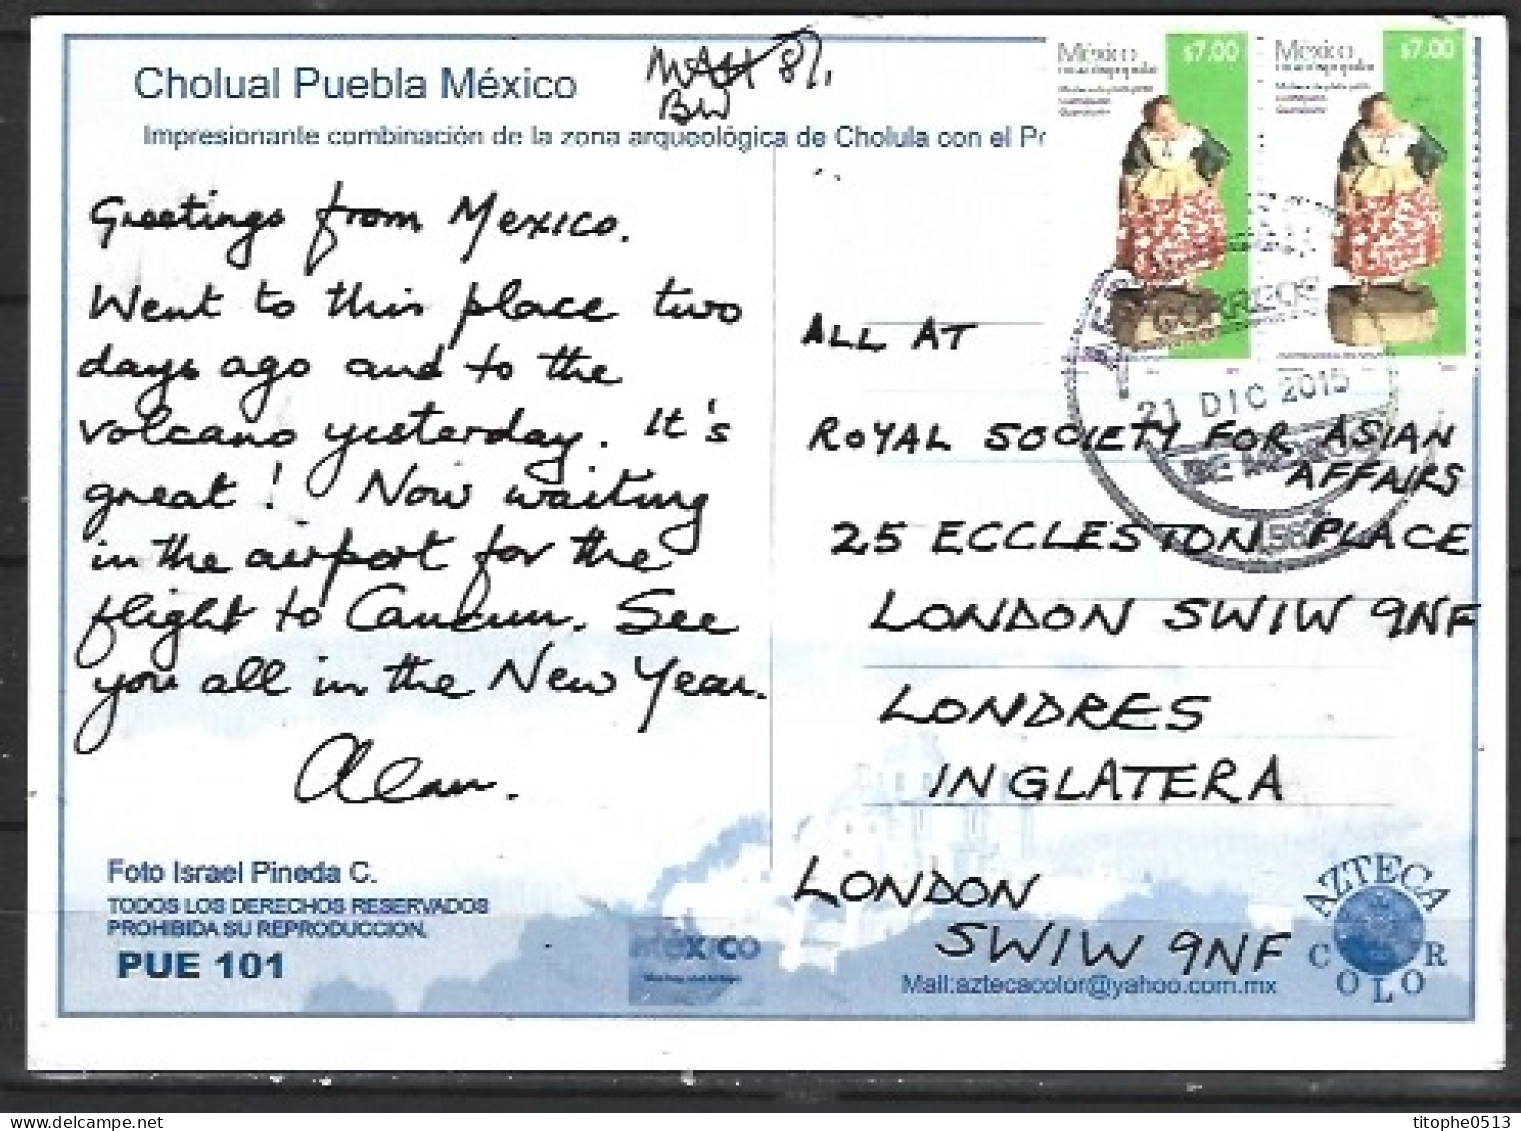 Cholual Puebla México
Impresionante combinación de la zona arqueológica de Cholula con el P
BW
México
$7.00
México
$7.00
Greetings from Mexico.
Went to this place two
days ago and to the
volcano yesterday. It's
great! Now waiting
in the airport for the
flight to Cancun. See
you all in the New Year.
Alan.
ALL AT
ROYAL SOCIETY FOR ASIAN
AFFAIRS
25 ECCLESTON PLACE
LONDON SW1W 9NF
LONDRES
INGLATERA
LONDON
SW1W 9NF
CORREOS
21 DIC 2015
Foto Israel Pineda C.
TODOS LOS DERECHOS RESERVADOS
PROHIBIDA SU REPRODUCCION.
PUE 101
México
Mail:aztecacolor@yahoo.com.mx
AZTECA
COLOR
titophe0513